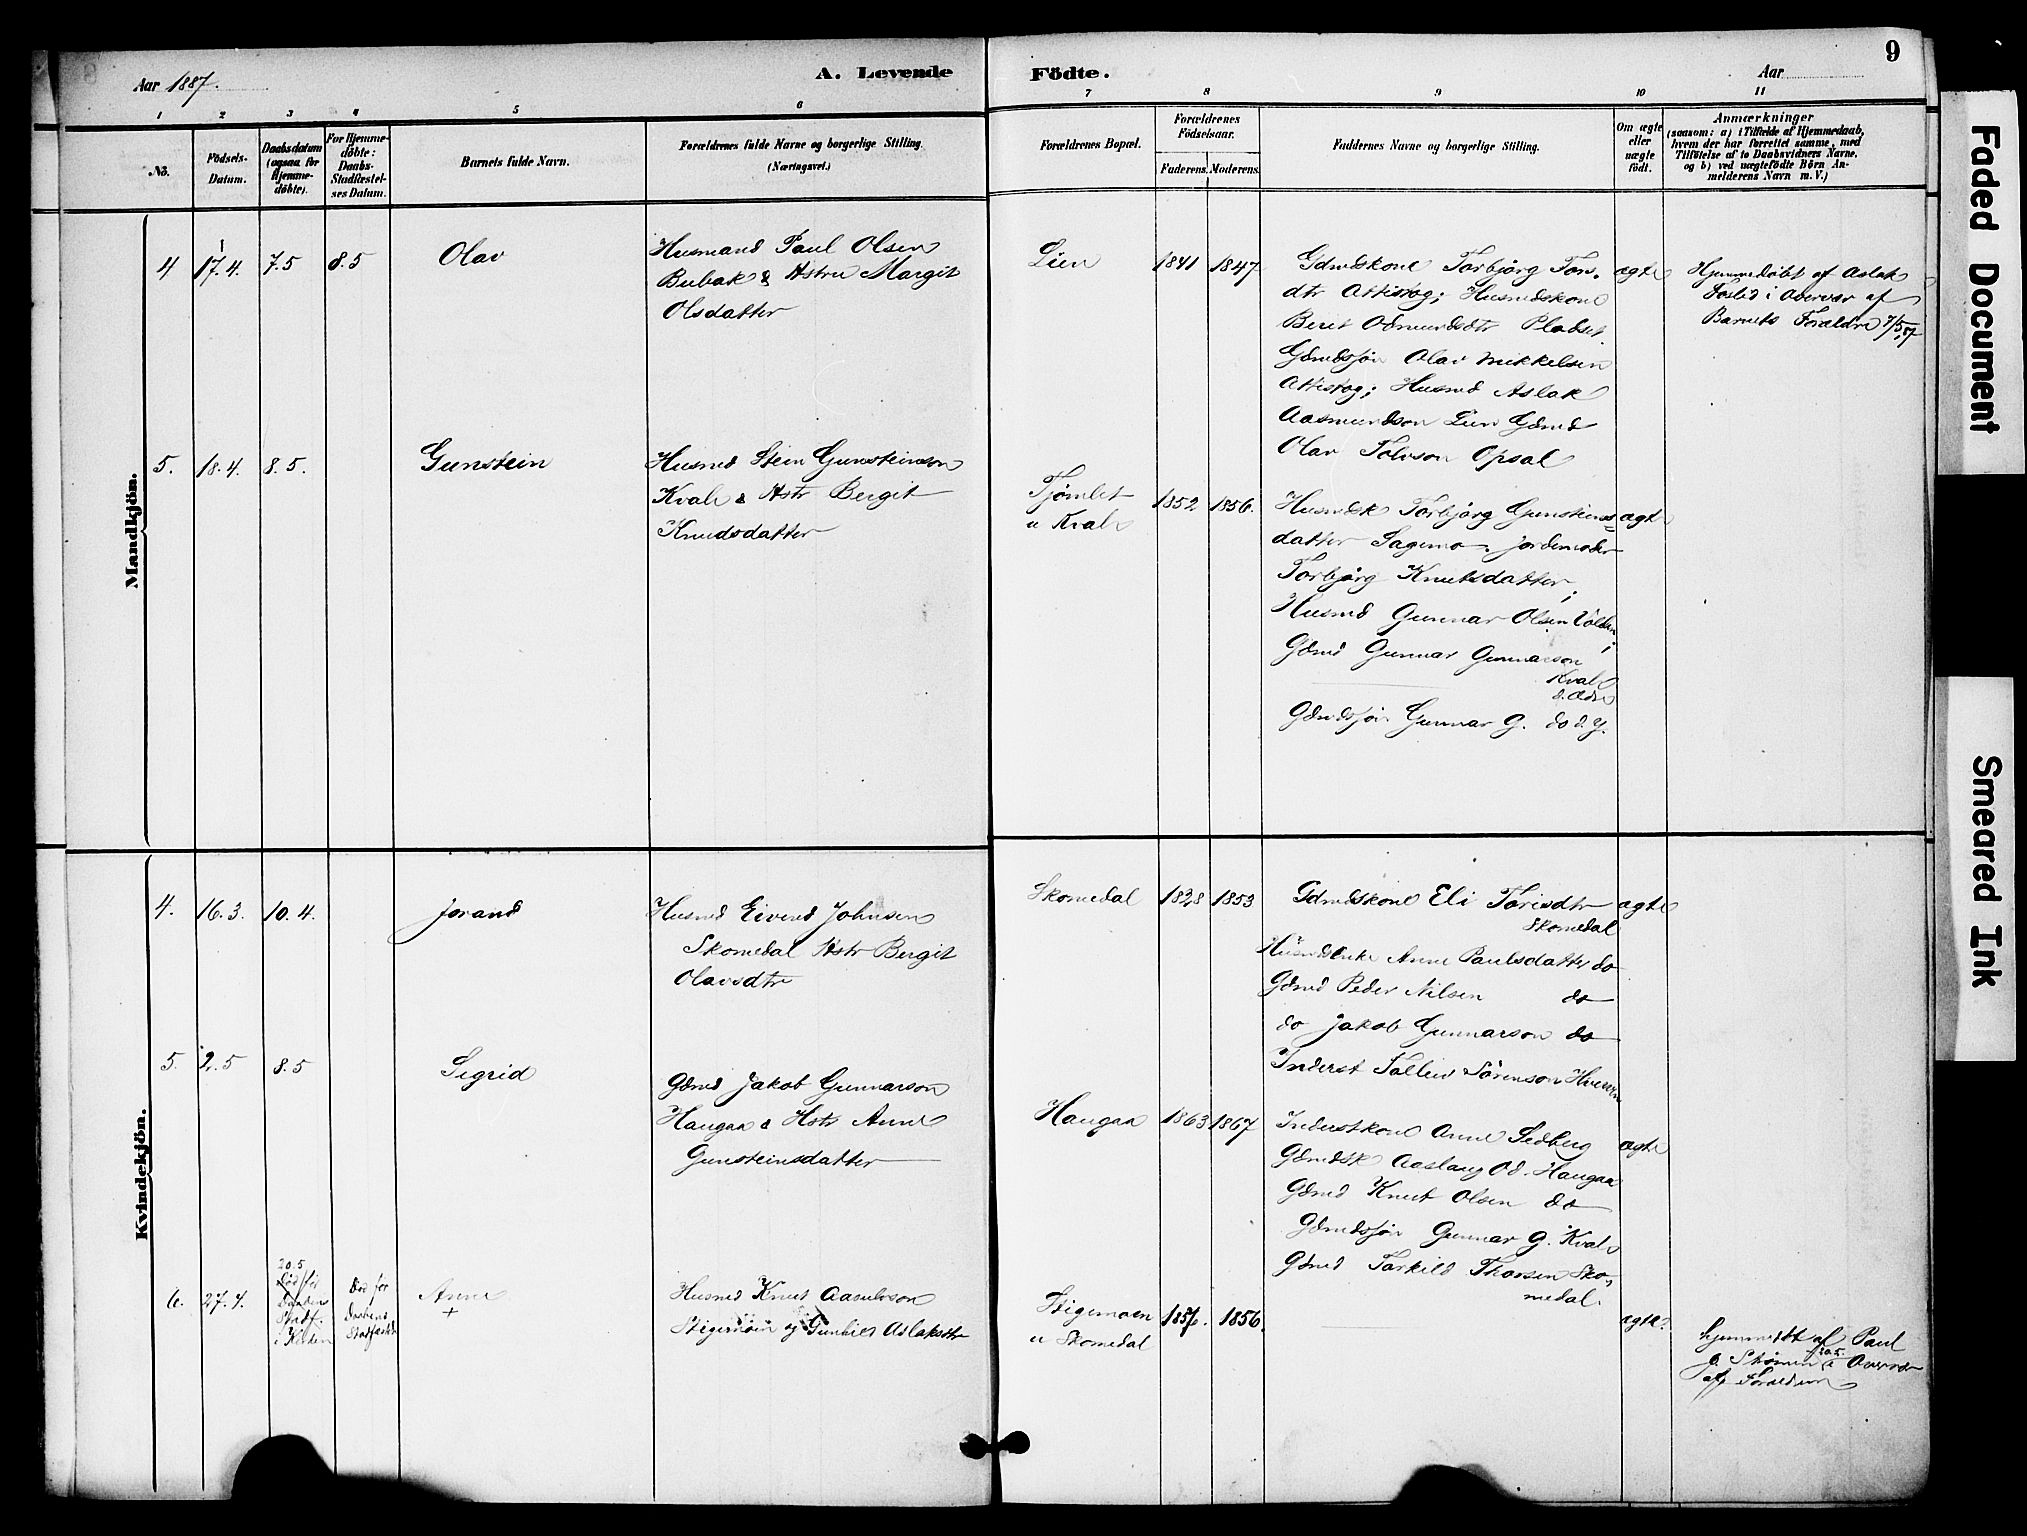 Aar 1887.
A. Levende
Födte.
Aar
9
1 2 3 4 5 6 7 8 9 10 11
No.
Födsels-
Datum.
Daabsdatum
(ogsaa for
Hjemme-
döbte).
For Hjemme-
döbte:
Daabs-
Stadfæstel-
ses Datum.
Barnets fulde Navn.
Forældrenes fulde Navne og borgerlige Stilling.
(Næringsvei.)
Forældrenes Bopæl.
Forældrenes
Födselsaar.
Faderens. Moderens.
Faddernes Navne og borgerlige Stilling.
Om ægte
eller
uægte
födt.
Anmærkninger
(saasom: a) i Tilfælde af Hjemmedaab,
hvem der har forrettet samme, med
Tilföielse af to Daabsvidners Navne,
og b) ved uægtefödte Börn An-
melderens Navn m. V.)
Mandkjön.
4
17.4.
7.5
8.5
Olav
Husmand Paul Olsen
Bubak & Hstru Margit
Olsdatter
Lien
1841
1847
Gdmdskone Torbjörg Tors-
dtr Attistog; Husmdskone
Berit Odmundsdtr Pladset
Gdmdssøn Olav Mikkelsen
Attistog; Husmd Aslak
Aasmundson Lien Gdmd
Olav Tolvson Opsal
ægte
Hjemmedøbt af Aslak
i Overvær af
Barnets Forældre 7/5 87
5.
18.4.
8.5.
Gunstein
Husmd Stein Gunsteinson
Kvale & Hstr Bergit
Knudsdatter
Tjømlet
u Kvale
1852
1856.
Husmdsk Torbjörg Gunsteins=
datter Sagemo. Jordemoder
Torbjörg Knutsdatter;
Husmd Gunnar Olsen Volden;
Gdmd Gunnar Gunnarson
Kvale
d. Ældre
Gdmdssøn Gunnar G. do d. Y.
ægte
Kvindekjön.
4.
16.3.
10.4.
Jorand
Husmd Eivind Johnsen
Skomedal Hstr Bergit
Olavsdtr
Skomedal
1828
1853
Gdmdskone Eli Torisdtr
Skomedal
Husmdsenke Anne Paulsdatter do
Gdmd Peder Nilsen do
do Jakob Gunnarson do
Inderst Tallev Sörenson
ægte
5.
2.5
8.5
Sigrid
Gdmd Jakob Gunnarson
Haugaa & Hstr Anne
Gunsteinsdatter
Haugaa
1863
1867
Inderstkone Anne Sedberg
Gdmdsk Aaslaug Od. Haugaa
Gdmd Knut Olsen do
Gdmdssøn Gunnar G. Kvale
Gdmd Tarkild Thorsen Sko-
medal.
ægte
6.
27.4.
20.5
Død før
Daabens
Stadf.
i Kirken
Død før
Daabens
Stadfæstelse
Anne
+
Husmd Knut Aasulvson
Stigemoen og Gunhild Aslaksdtr
Stigemoen
u Skomedal
1856.
ægte.
hjemmedøbt af Paul
20.5. i Overvær
af Forældrene
Faded Document
Smeared Ink